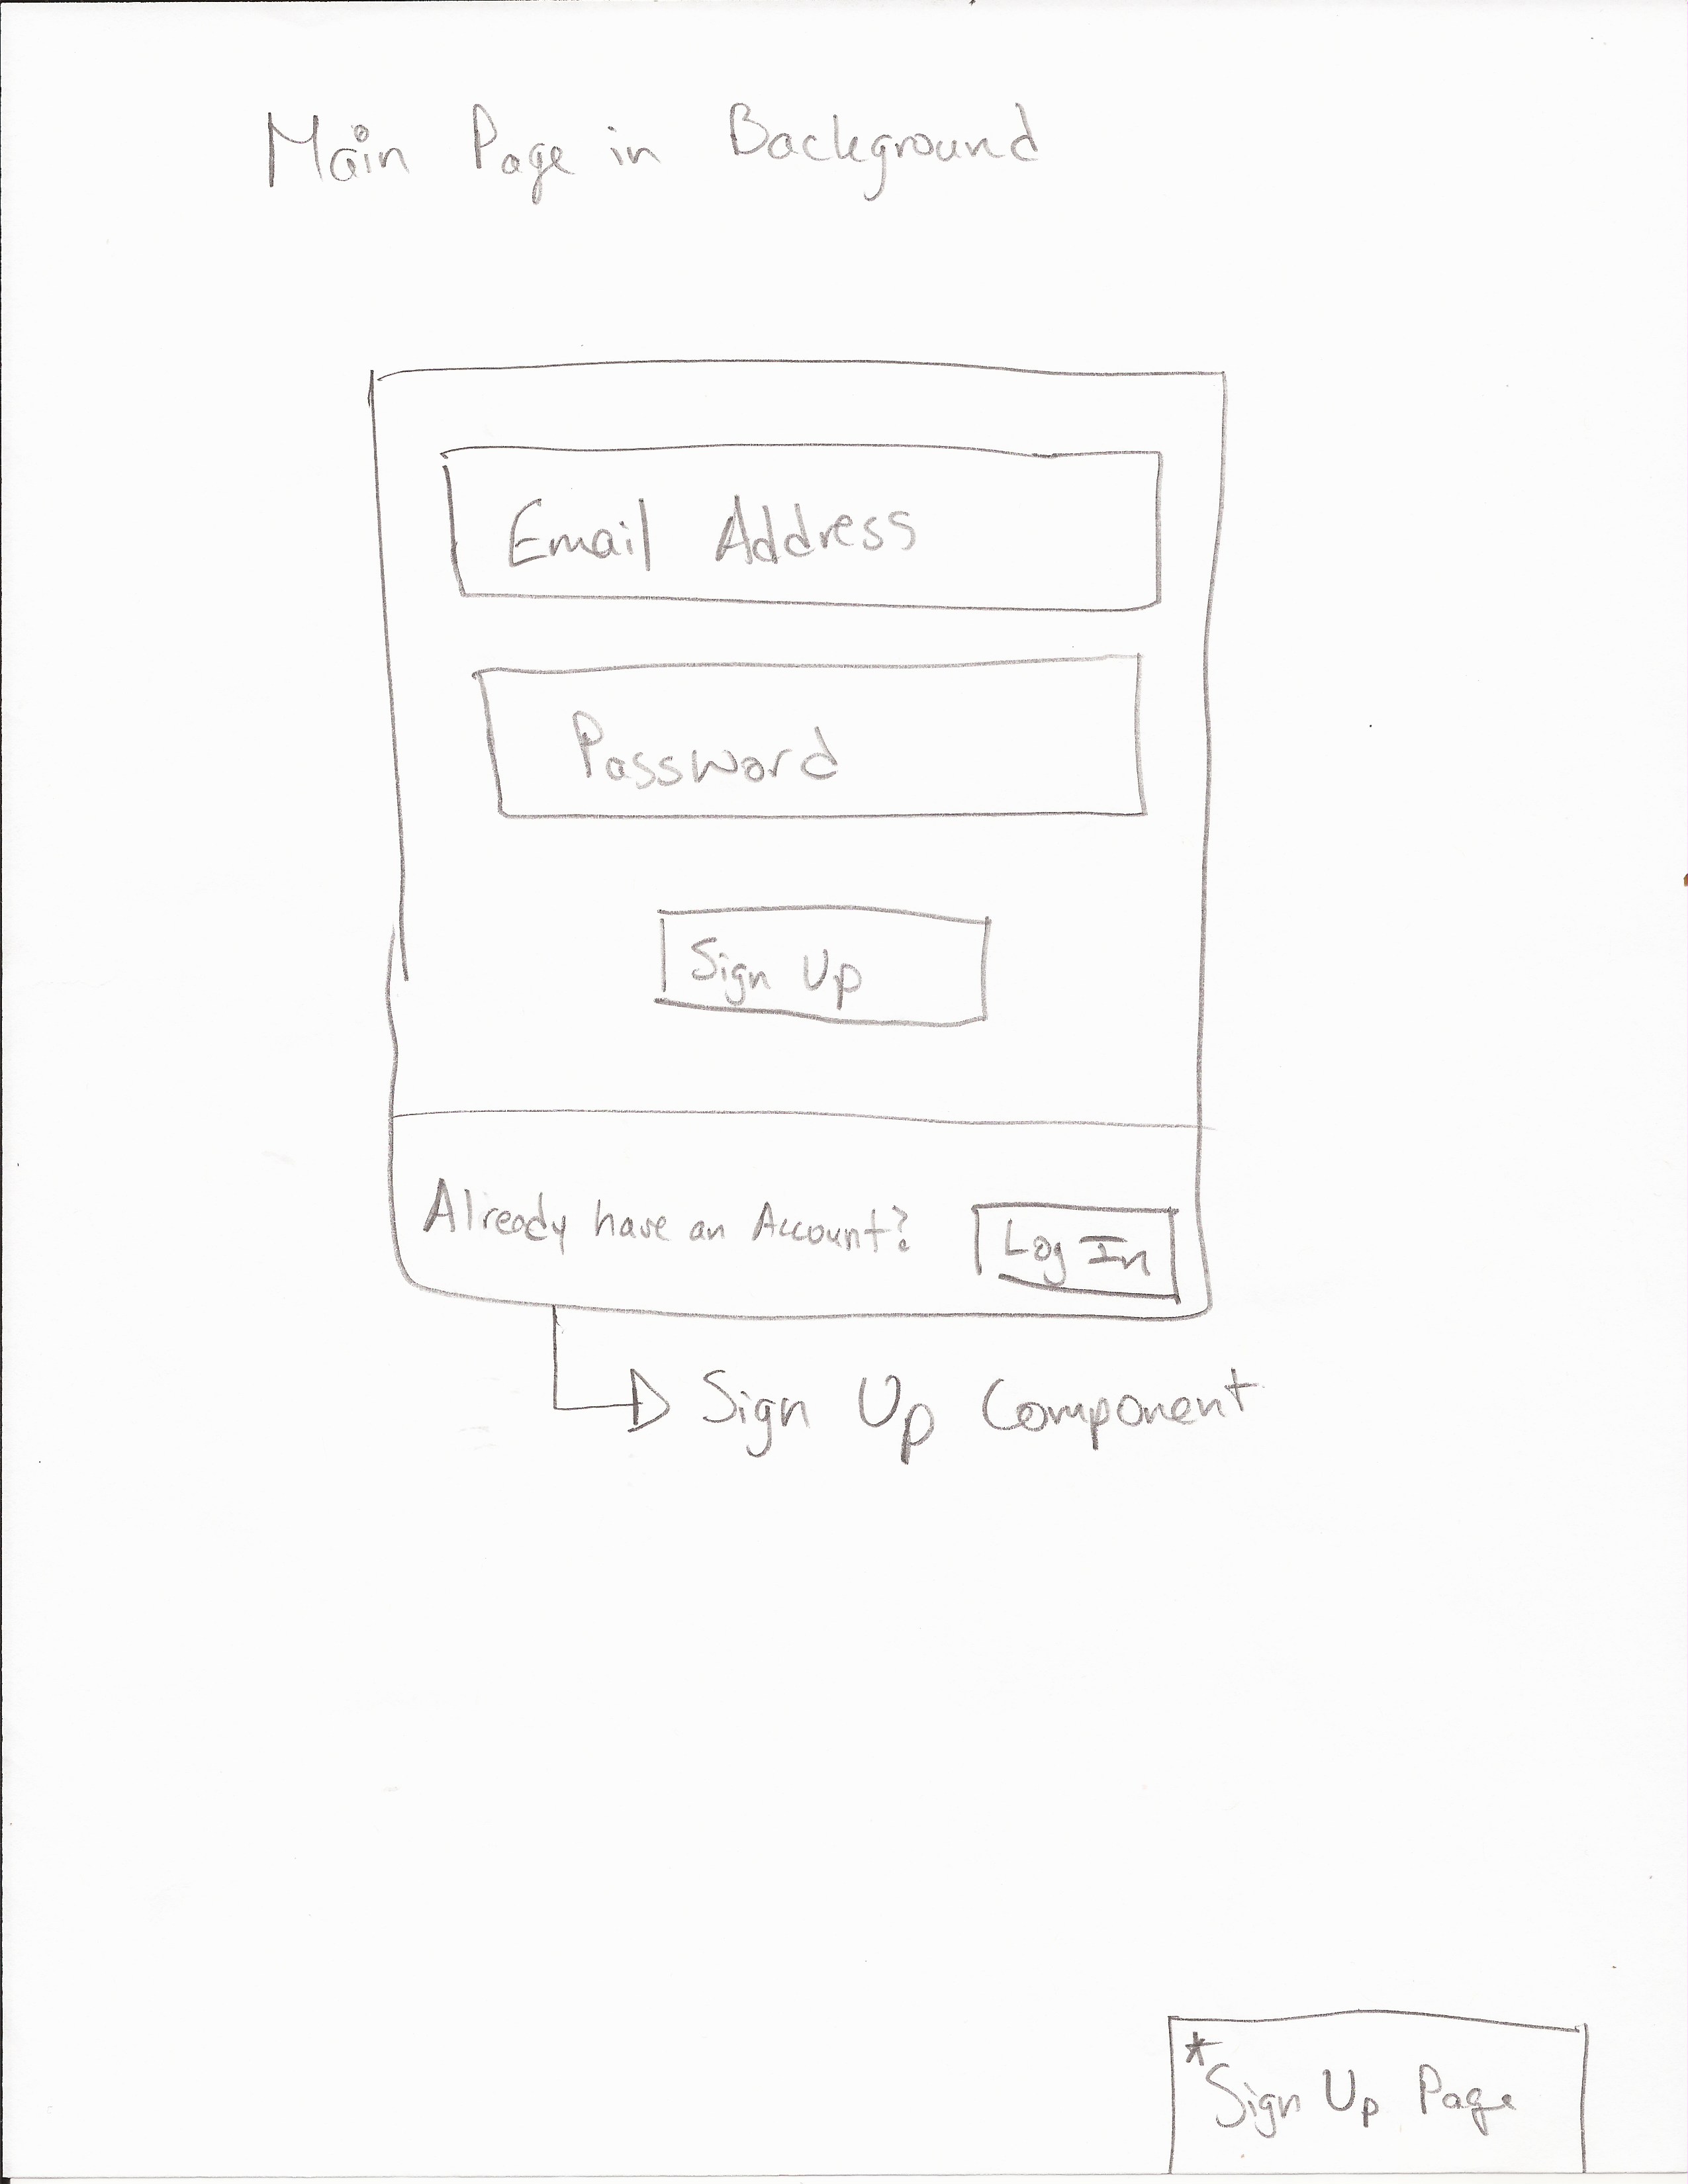 Main Page in Background
Email Address
Password
Sign Up
Already have an Account?
Log In
Sign Up Component
* Sign Up Page